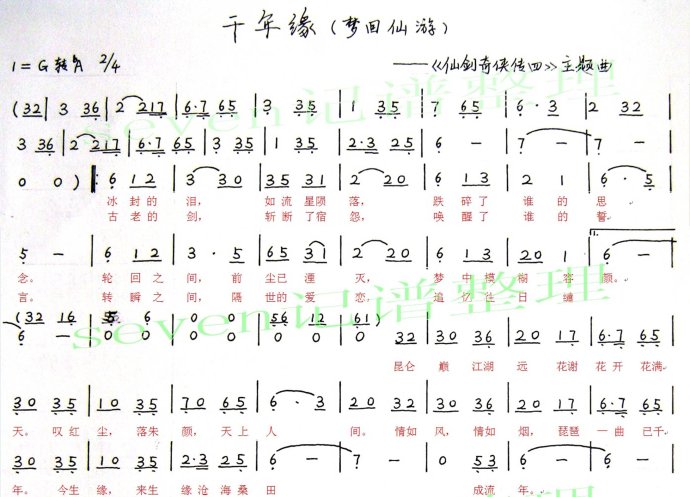 千年缘(梦回仙游)
1=G转A 2/4 ——《仙剑奇侠传四》主题曲
seven记谱整理
(32 | 3 36 | 2 217 | 6·7 65 | 3 35 | 1 35 | 7 65 | 6 · 3 | 2 32 |
3 36 | 2 217 | 6·7 65 | 3 35 | 1 35 | 2·3 25 | 6 - | 7 - | 7 - |
0 0) ‖: 6 12 | 3 30 | 35 31 | 2 20 | 6 13 | 2 1 | 6 · 5 |
冰封的泪,如流星陨落,跌碎了谁的思
古老的剑,斩断了宿怨,唤醒了谁的誓
5 - | 6 12 | 3 · 5 | 65 31 | 2 20 | 6 13 | 20 1 | 6 - |
念。轮回之间,前尘已湮灭,梦中模糊容颜。
言。转瞬之间,隔世的爱恋,追忆往日缠
seven记谱整理
(32 16 | 5 6 | 0 0 | 56 12 | 61)
6 - | 0 0 | 0 0 | 0 0 | 0 32 | 30 35 | 20 17 | 6·7 65 |
昆仑巅江湖远花谢花开花满
30 35 | 10 35 | 70 65 | 6 · 3 | 20 32 | 30 35 | 20 17 | 6·7 65 |
天。叹红尘,落朱颜,天上人间。情如风,情如烟,琵琶一曲已千
30 35 | 10 35 | 2·3 25 | 6 - | 7 - | 7 0 | 0 53 | 6 - |
年。今生缘,来生缘沧海桑田成流年。